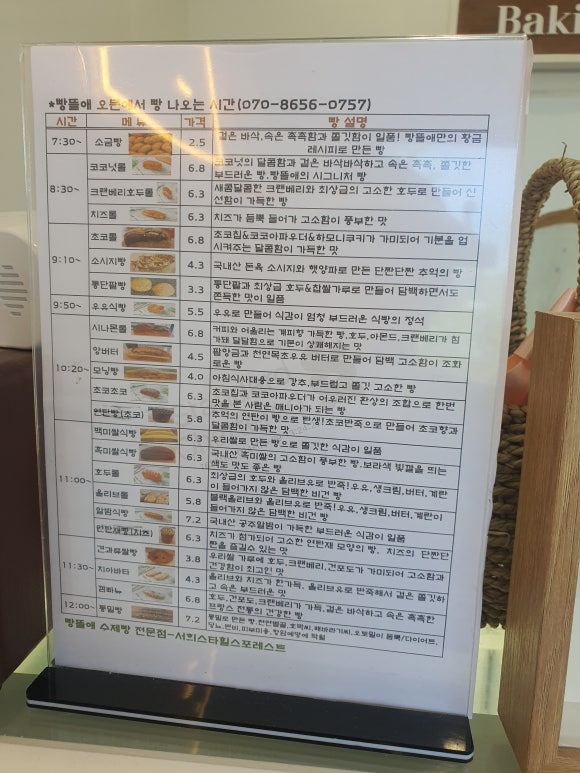 Baki
*빵뜰애 오븐에서 빵 나오는 시간(070-8656-0757)
시간 메뉴 가격 빵 설명
7:30~ 소금빵 2.5 겉은 바삭,속은 촉촉함과 쫄깃함이 일품! 빵뜰애만의 황금
레시피로 만든 빵
8:30~ 코코넛롤 6.8 코코넛의 달콤함과 겉은 바삭바삭하고 속은 촉촉, 쫄깃한
부드러운 빵.빵뜰애의 시그니처 빵
크랜베리호두롤 6.3 새콤달콤한 크랜베리와 최상급의 고소한 호두로 만들어 신
선함이 가득한 빵
치즈롤 6.3 치즈가 듬뿍 들어가 고소함이 풍부한 맛
9:10~ 초코롤 6.8 초코칩&코코아파우더&하모니쿠키가 가미되어 기분을 업
시켜주는 달콤함이 가득한 맛
소시지빵 4.3 국내산 돈육 소시지와 햇양파로 만든 단짠단짠 추억의 빵
통단팥빵 3.3 통단팥과 최상급 호두&찹쌀가루로 만들어 담백하면서도
쫀득한 맛이 일품
9:50~ 우유식빵 5.5 우유로 만들어 식감이 엄청 부드러운 식빵의 정석
10:20~ 시나몬롤 6.8 커피와 어울리는 계피향 가득한 빵,호두,아몬드,크랜베리가 첨
가돼 달달함으로 기분이 상쾌해지는 맛
앙버터 4.5 팥앙금과 천연목초우유 버터로 만들어 담백 고소함이 조화
로운 빵
모닝빵 4.0 아침식사대용으로 강추,부드럽고 쫄깃 고소한 빵
초코초코 6.3 초코칩과 코코아파우더가 어우러진 환상의 조합으로 한번
맛을 본 사람은 매니아가 되는 빵
연탄빵(초코) 5.8 추억의 연탄이 빵으로 탄생!초코반죽으로 만들어 초코향과
달콤함이 가득한 맛
11:00~ 백미쌀식빵 6.3 우리쌀로 만든 빵으로 쫄깃한 식감이 일품
흑미쌀식빵 6.3 국내산 흑미쌀의 고소함이 풍부한 빵,보라색 빛깔을 띄는
색도 맛도 좋은 빵
호두롤 6.3 최상급의 호두와 올리브유로 반죽!우유,생크림,버터,계란
이 들어가지 않은 담백한 비건 빵
올리브롤 5.8 블랙올리브와 올리브유로 반죽!우유,생크림,버터,계란이
들어가지 않은 담백한 비건 빵
알밤식빵 7.2 국내산 공주알밤이 가득한 부드러운 식감이 일품
연탄재빵(치즈) 6.3 치즈가 첨가되어 고소한 연탄재 모양의 빵, 치즈의 단짠단
짠을 즐길수 있는 맛
11:30~ 견과류쌀빵 3.8 우리쌀 가루에 호두,크랜베리,건포도가 가미되어 고소함과
건강함이 최고인 맛
치아바타 4.3 올리브와 치즈가 한가득, 올리브유로 반죽해서 겉은 쫄깃하
고 속은 부드러운 맛
깜빠뉴 6.8 호두,건포도,크랜베리가 가득,겉은 바삭하고 속은 촉촉한
프랑스 전통의 건강한 빵
12:00~ 통밀빵 7.2 통밀로 만든 빵,천연벌꿀,호박씨,해바라기씨, 오토밀이 듬뿍/다이어트,
당뇨,변비,피부미용,항암예방에 탁월
빵뜰애 수제빵 전문점-서희스타힐스포레스트